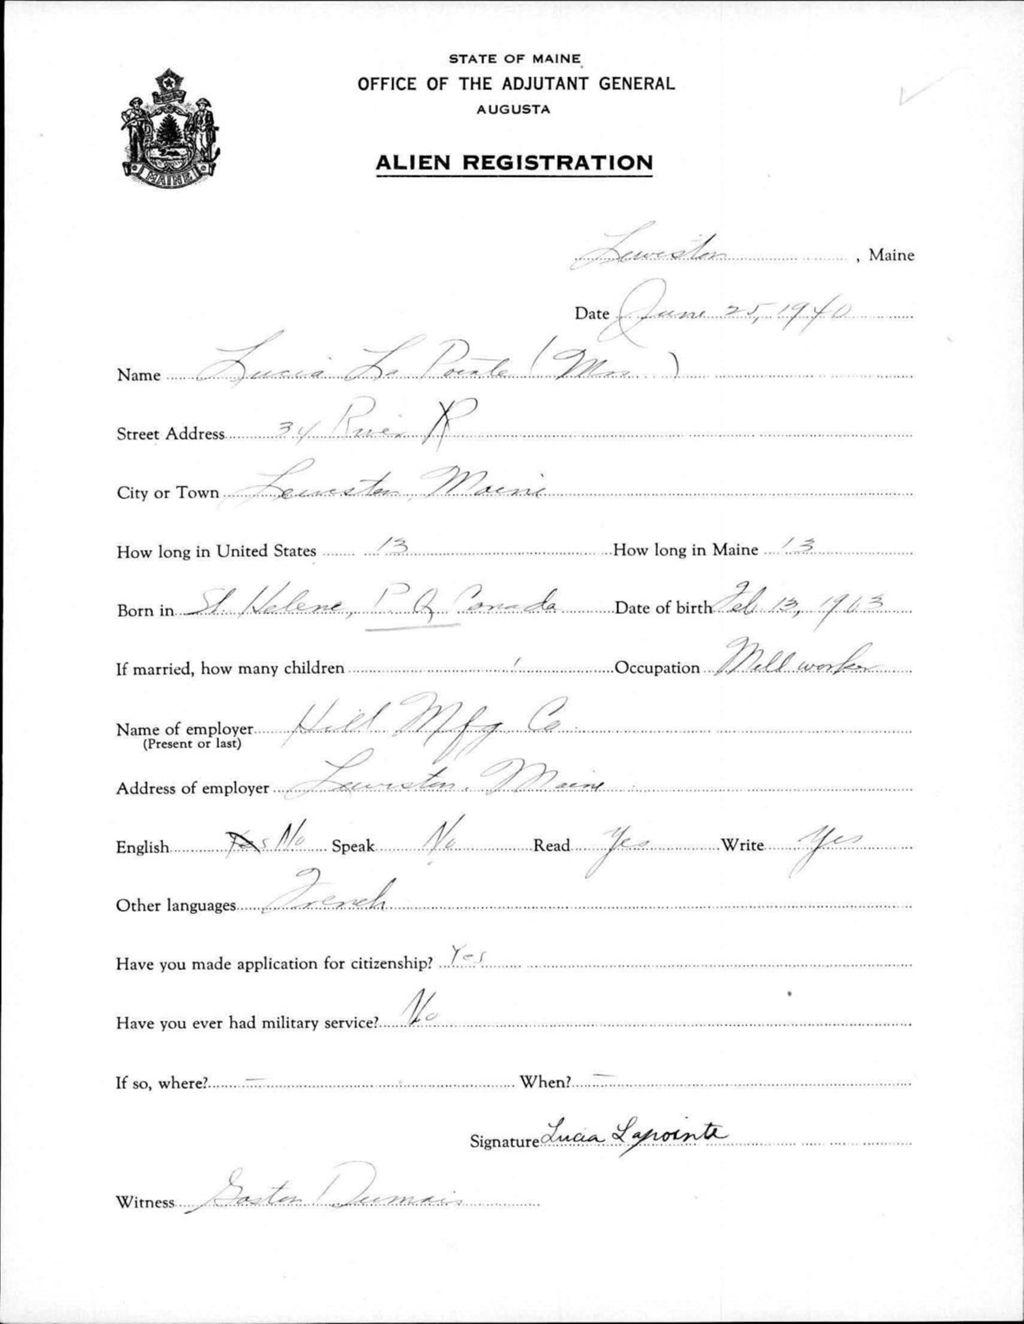 STATE OF MAINE
OFFICE OF THE ADJUTANT GENERAL
AUGUSTA
ALIEN REGISTRATION
MAINE
Lewiston, Maine
Date June 25, 1940
Name Lucia La Pointe (Mrs.)
Street Address 34 River
City or Town Lewiston, Maine
How long in United States 13 How long in Maine 13
Born in St. Helene, P Q Canada Date of birth Feb 13, 1903
If married, how many children 1 Occupation Mill worker
Name of employer Hill Mfg Co.
(Present or last)
Address of employer Lewiston, Maine
English No Speak No Read Yes Write Yes
Other languages French
Have you made application for citizenship? Yes
Have you ever had military service? No
If so, where? — When? —
Signature Lucia Lapointe
Witness Gaston Dumais